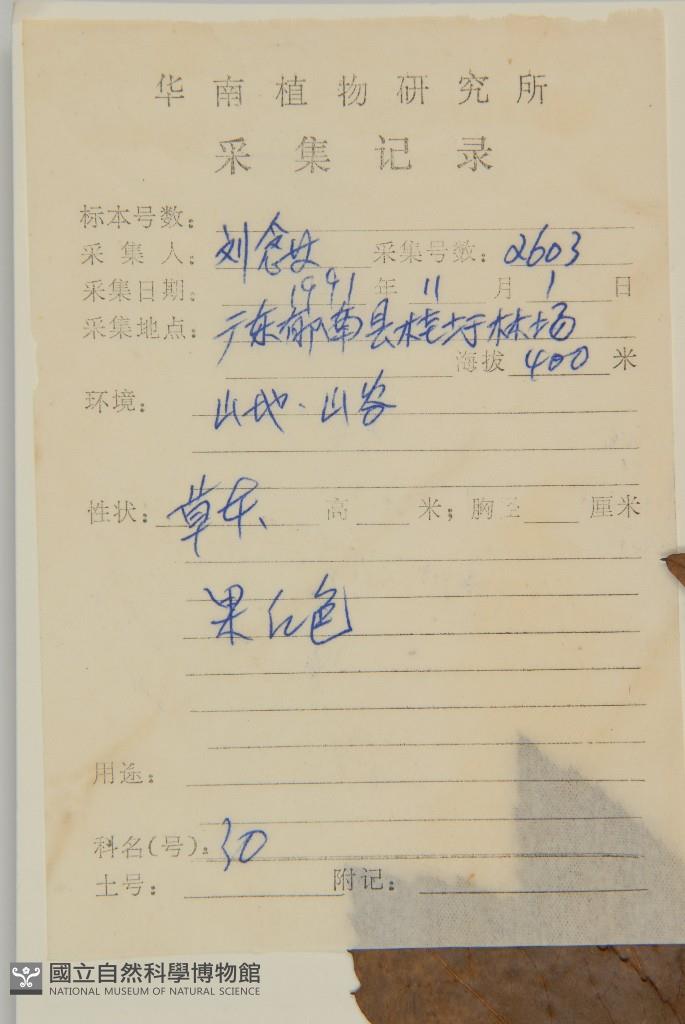 华南植物研究所
采集记录
标本号数：
采集人：刘念 采集号数：2603
采集日期：1991年11月1日
采集地点：广东郁南县桂圩林场
海拔400米
环境：山地·山谷
性状：草本 高 米；胸径 厘米
果红色
用途：
科名(号)：30
土号： 附记：
國立自然科學博物館
NATIONAL MUSEUM OF NATURAL SCIENCE